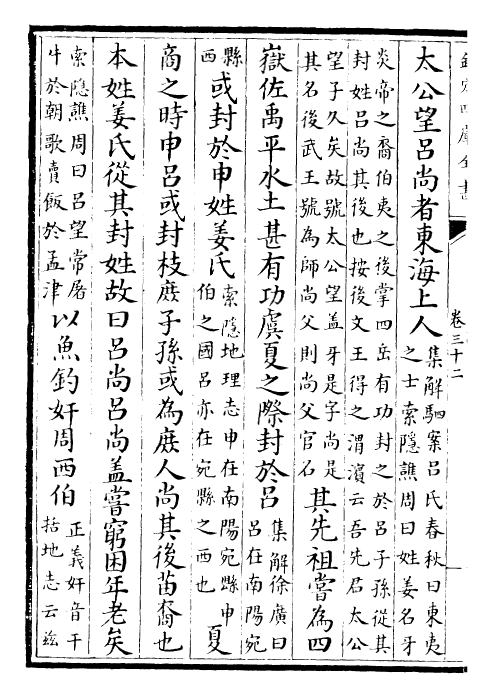 欽定四庫全書
卷三十二
太公望呂尚者東海上人
集解駰案呂氏春秋曰東夷
之士索隱譙周曰姓姜名牙
炎帝之裔伯夷之後掌四岳有功封之於呂子孫從其
封姓呂尚其後也按後文王得之渭濱云吾先君太公
望子久矣故號太公望蓋牙是字尚是
其名後武王號為師尚父則尚父官名
其先祖嘗為四
嶽佐禹平水土甚有功虞夏之際封於呂
集解徐廣曰
呂在南陽宛
縣
西
或封於申姓姜氏
索隱地理志申在南陽宛縣申
伯之國呂亦在宛縣之西也
夏
商之時申呂或封枝庶子孫或為庶人尚其後苗裔也
本姓姜氏從其封姓故曰呂尚呂尚蓋嘗窮困年老矣
索隱譙周曰呂望常屠
牛於朝歌賣飯於孟津
以魚釣奸周西伯
正義奸音干
括地志云茲